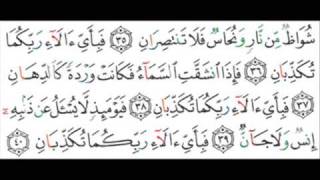 شُوَاظٌ مِّن نَّارٍ وَنُحَاسٌ فَلَا تَنتَصِرَانِ ﴿٣٥﴾ فَبِأَيِّ ءَالَآءِ رَبِّكُمَا
تُكَذِّبَانِ ﴿٣٦﴾ فَإِذَا ٱنشَقَّتِ ٱلسَّمَآءُ فَكَانَتْ وَرْدَةً كَٱلدِّهَانِ
﴿٣٧﴾ فَبِأَيِّ ءَالَآءِ رَبِّكُمَا تُكَذِّبَانِ ﴿٣٨﴾ فَيَوْمَئِذٍ لَّا يُسْـَٔلُ عَن ذَنۢبِهِۦٓ
إِنسٌ وَلَا جَآنٌّ ﴿٣٩﴾ فَبِأَيِّ ءَالَآءِ رَبِّكُمَا تُكَذِّبَانِ ﴿٤٠﴾